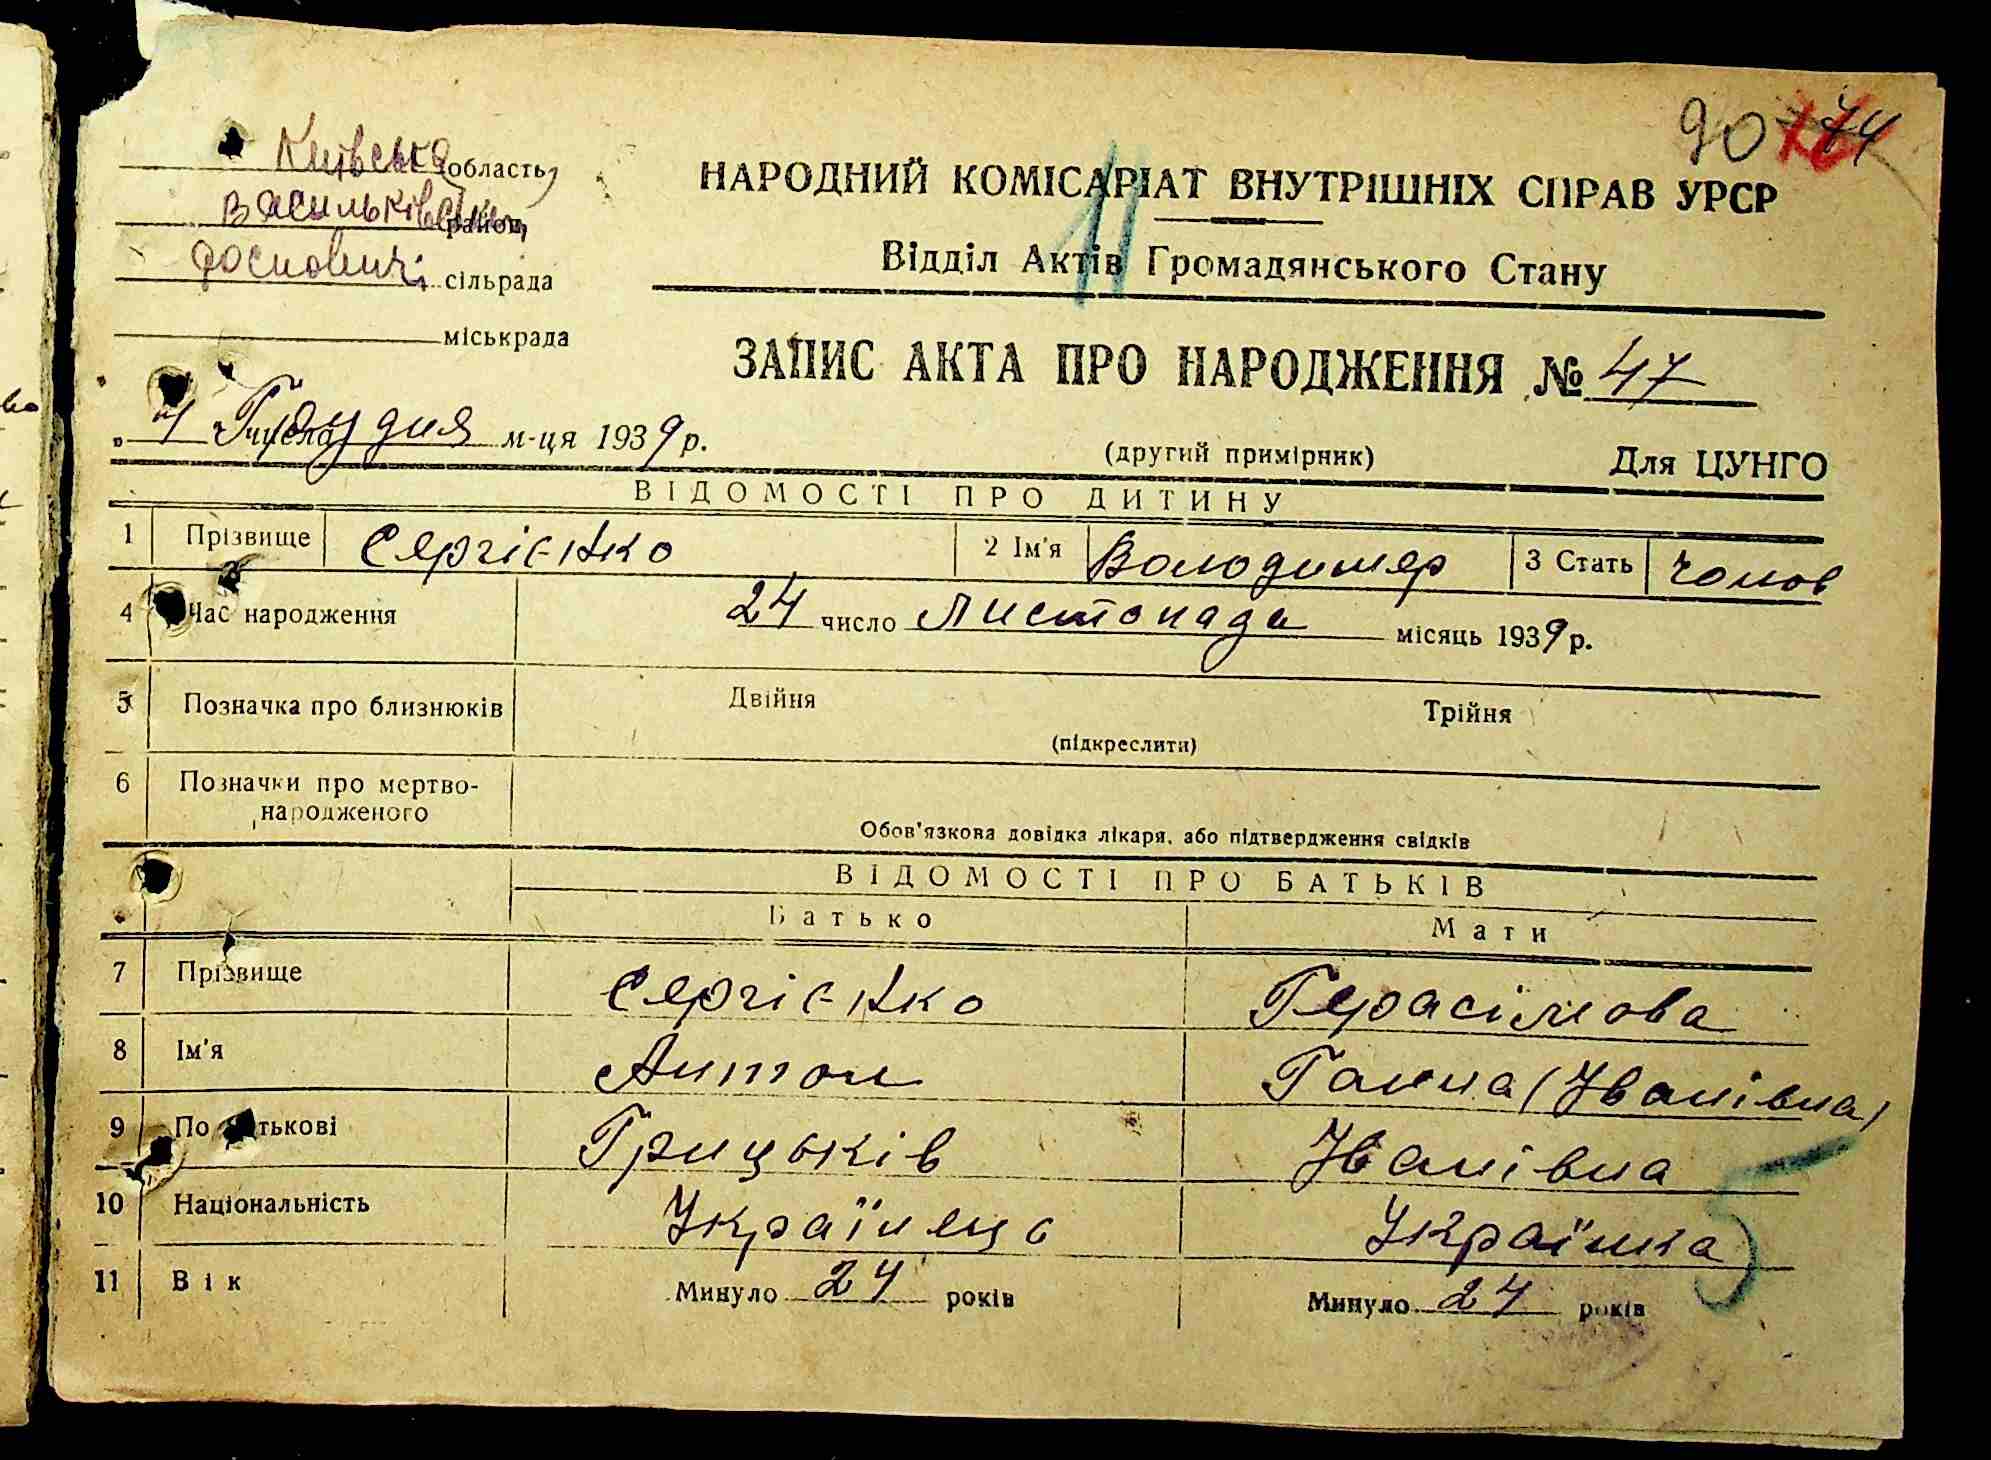 90 44
Київська область,
Васильківськ. район,
сільрада
міськрада
НАРОДНИЙ КОМІСАРІАТ ВНУТРІШНІХ СПРАВ УРСР
Відділ Актів Громадянського Стану
11
ЗАПИС АКТА ПРО НАРОДЖЕННЯ № 47
„ 4 числа Грудня м-ця 1939 р.
(другий примірник) Для ЦУНГО
ВІДОМОСТІ ПРО ДИТИНУ
1 Прізвище Сергієнко 2 Ім'я Володимер 3 Стать чолов
4 Час народження 24 число листопада місяць 1939 р.
5 Позначка про близнюків Двійня Трійня
(підкреслити)
6 Позначки про мертво-
народженого
Обов'язкова довідка лікаря, або підтвердження свідків
ВІДОМОСТІ ПРО БАТЬКІВ
Батько Мати
7 Прізвище Сергієнко Герасімова
8 Ім'я Антон Ганна (Іванівна)
9 По батькові Грицьків Іванівна
10 Національність Українець Українка
11 Вік Минуло 24 років Минуло 24 років
5